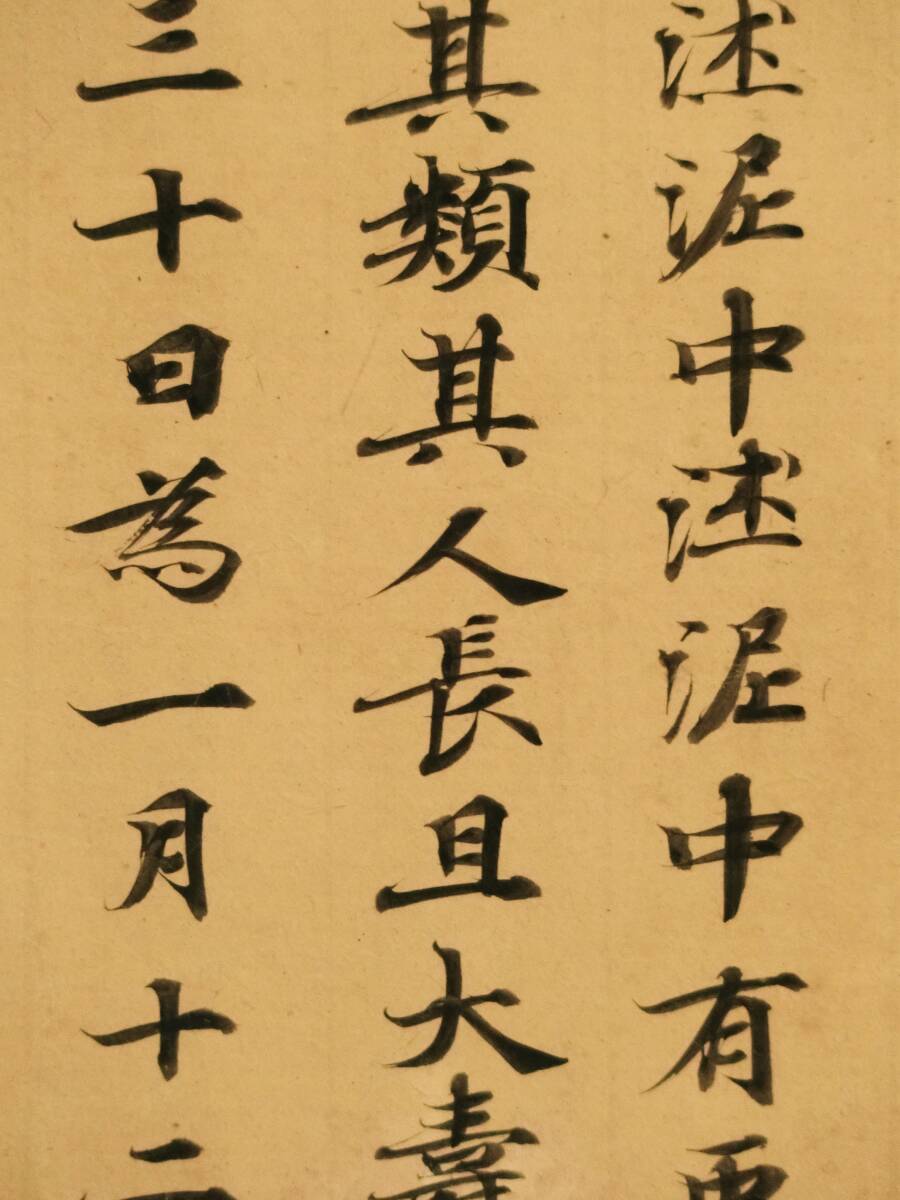 述泥中述泥中有
其類其人長且大壽
三十日為一月十二